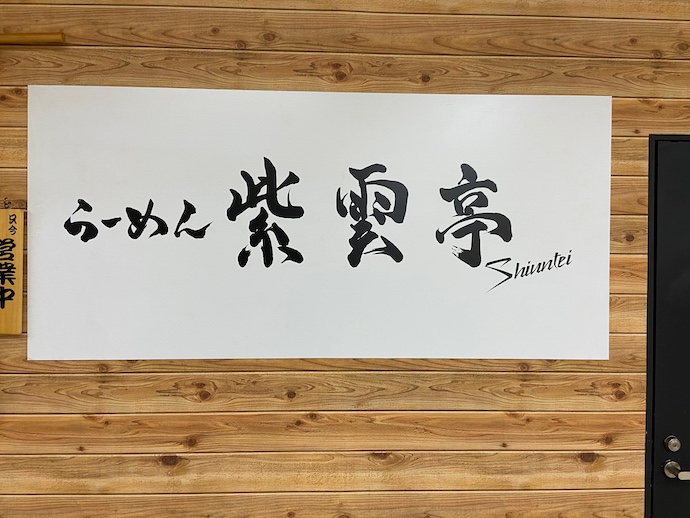 らーめん 紫雲亭
Shiuntei
只今
営業中